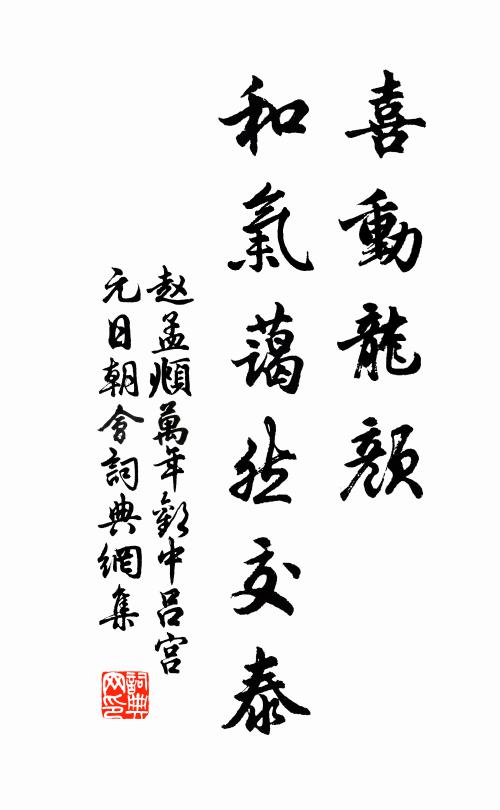 喜動龍顔
和氣藹然交泰
赵孟頫萬年歡中吕宫
元日朝會詞典網集
詞典网印